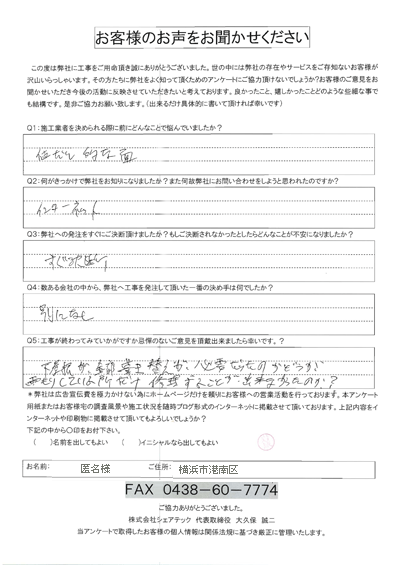 お客様のお声をお聞かせください
この度は弊社に工事をご用命頂き誠にありがとうございました。世の中には弊社の存在やサービスをご存知ないお客様が
沢山いらっしゃいます。その方たちに弊社をよく知って頂くためのアンケートにご協力頂けないでしょうか?お客様のご意見をお
聞かせいただき今後の活動に反映させていただきたいと考えております。良かったこと、嬉しかったことどのような些細な事で
も結構です。是非ご協力お願い致します。(出来るだけ具体的に書いて頂ければ幸いです)
Q1:施工業者を決められる際に前にどんなことで悩んでいましたか?
値だん的な面
Q2:何がきっかけで弊社をお知りになりましたか?また何故弊社にお問い合わせをしようと思われたのですか?
インターネット
Q3:弊社への発注をすぐにご決断頂けましたか?もしご決断されなかったとしたらどんなことが不安になりましたか?
すぐ決断
Q4:数ある会社の中から、弊社へ工事を発注して頂いた一番の決め手は何でしたか?
別になし
Q5:工事が終わってみていかがですか忌憚のないご意見を頂戴出来ましたら幸いです。?
替えが、必要だったのかどうか
雨もりしている所だけ修理することが出来なかったのか?
*弊社は広告宣伝費を極力かけない為にホームページだけを頼りにお客様への営業活動を行っております。本アンケート
用紙またはお客様宅の調査風景や施工状況を随時ブログ形式のインターネットに掲載させて頂いております。上記内容をイ
ンターネットや印刷物に掲載させて頂いてもよろしいでしょうか?
下記の中から〇印をお付下さい。
( )名前を出してもよい ( )イニシャルなら出してもよい
お名前: 匿名様 ご住所: 横浜市港南区
FAX 0438-60-7774
ご協力ありがとうございました。
株式会社シェアテック 代表取締役 大久保 誠二
当アンケートで取得したお客様の個人情報は関係法規に基づき厳正に管理いたします。